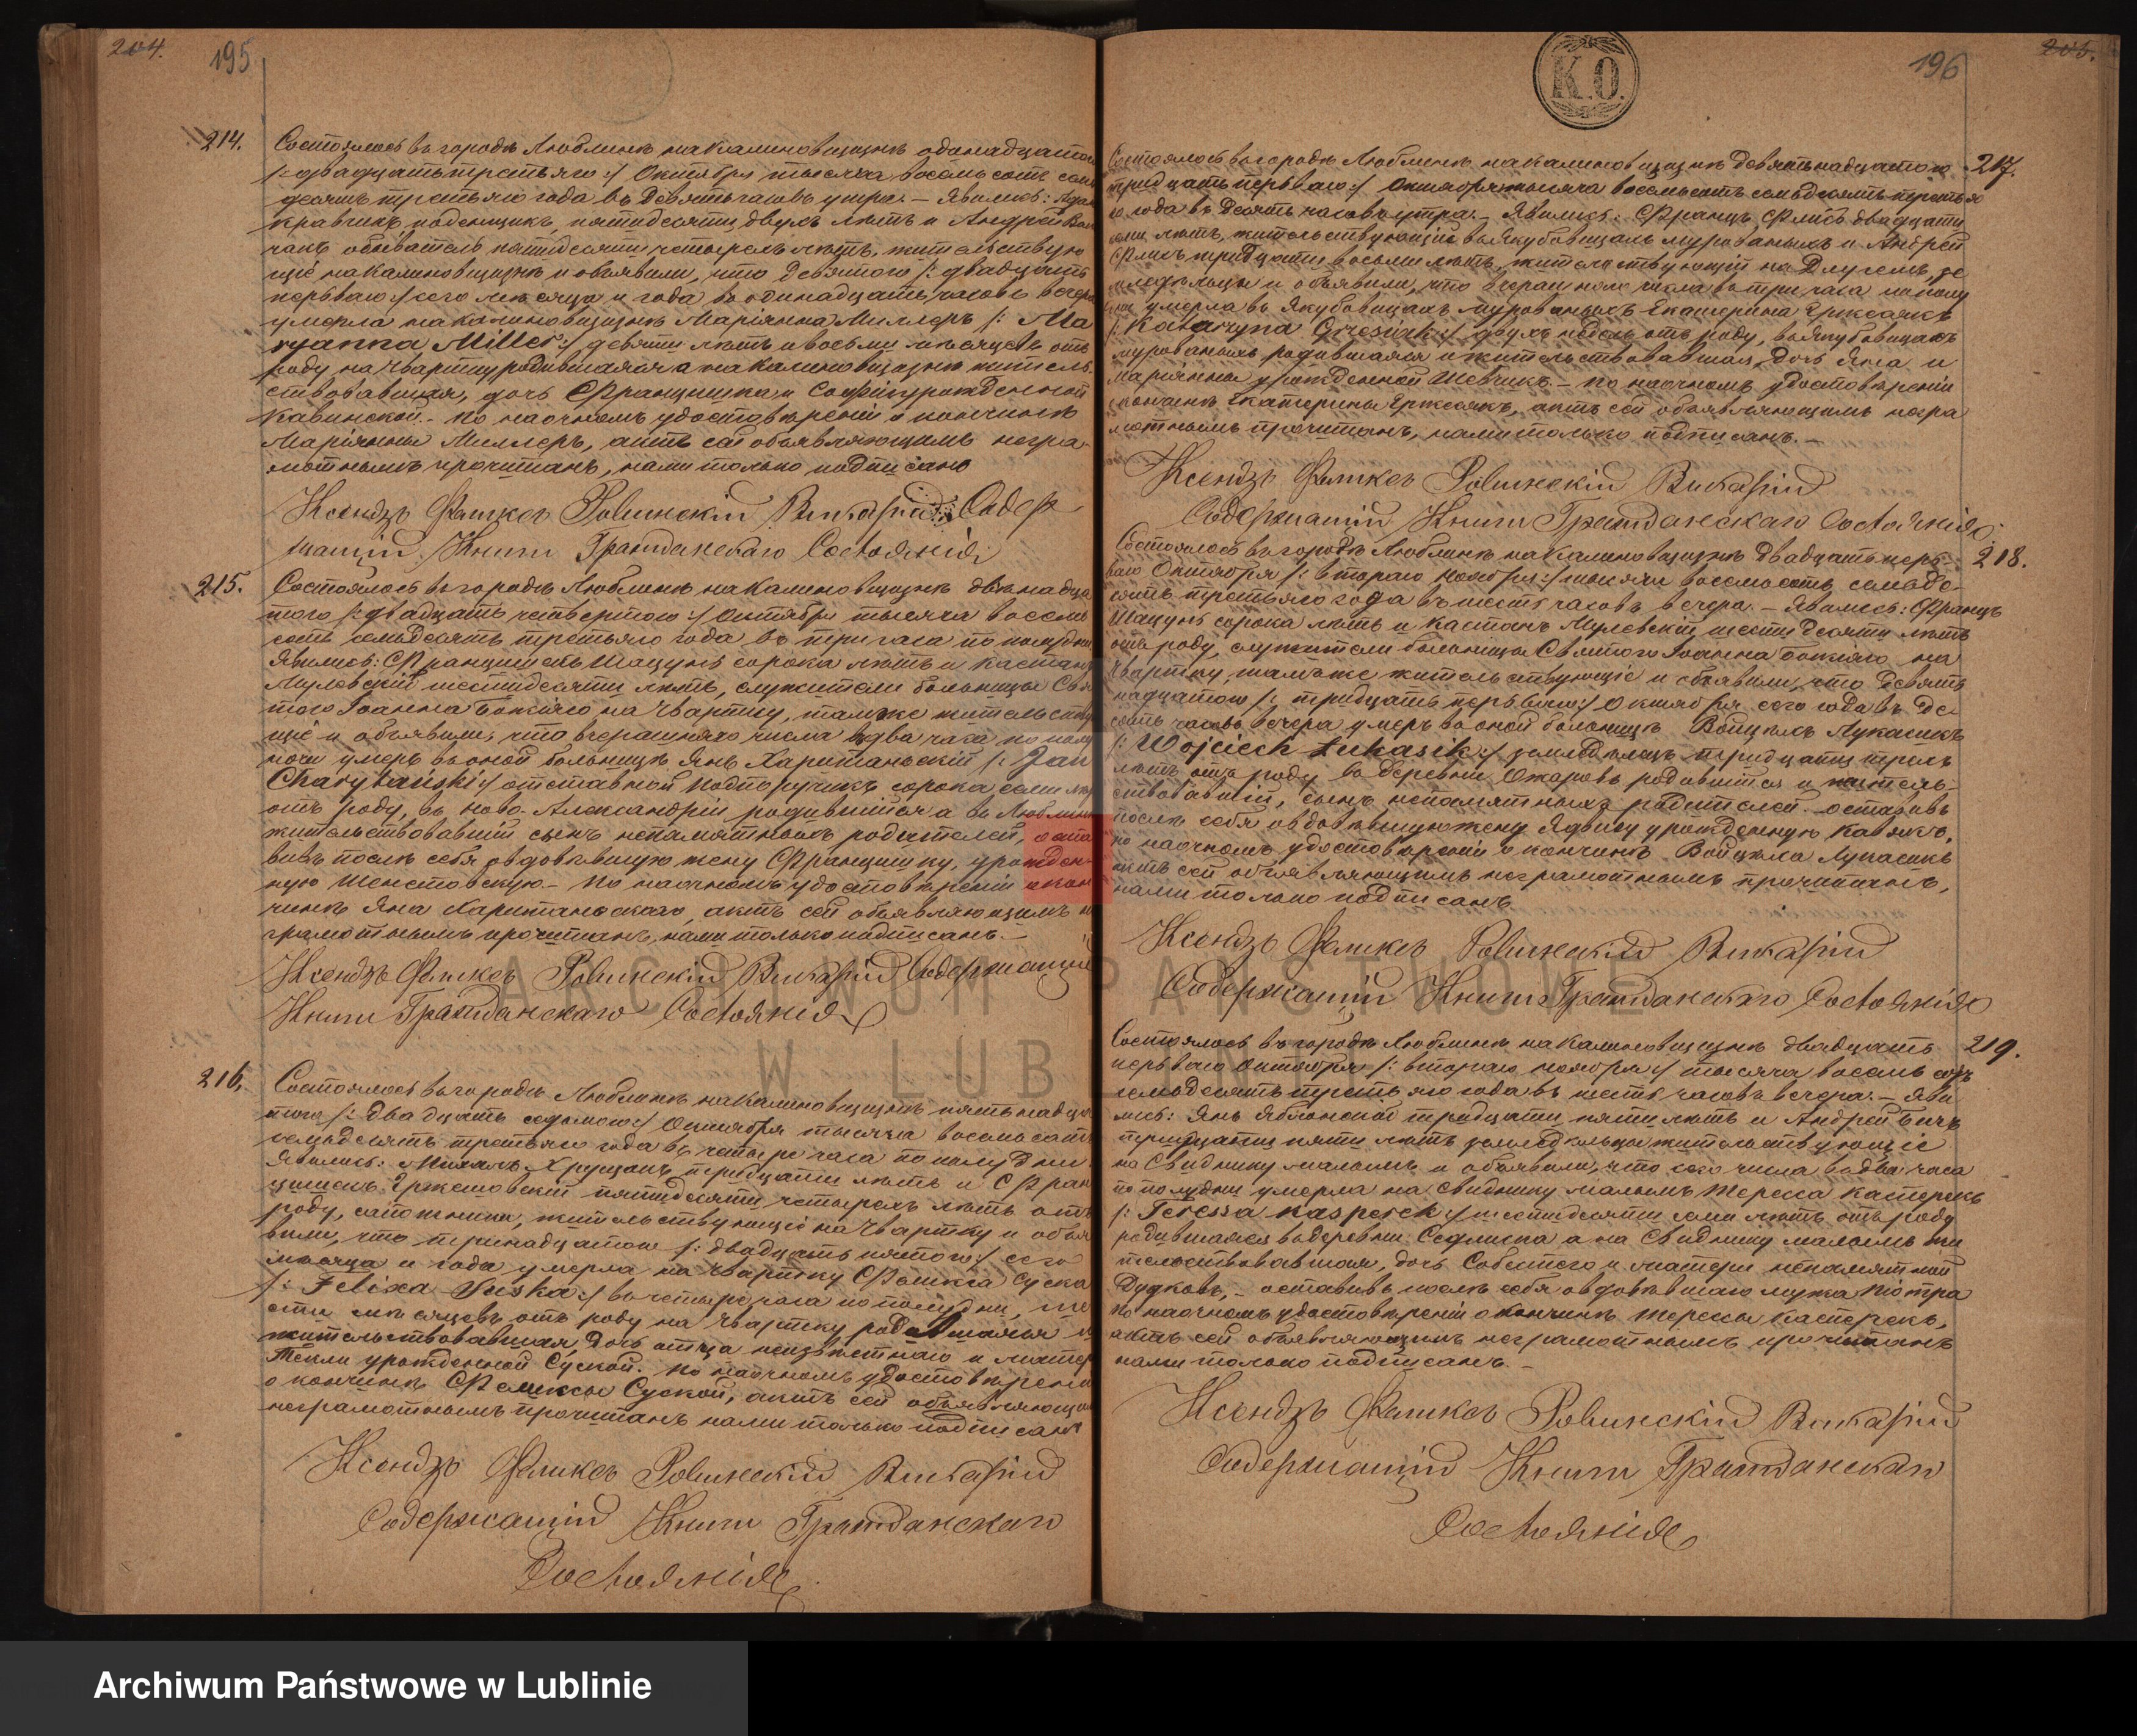 204.
195
214.
Состоялось въ городѣ Люблинѣ на Калиновщизнѣ одинадцатаго
/: двадцать третьяго :/ Октября тысяча восемь сотъ семь
десятъ третьяго года въ девять часовъ утра. – Явились: Адам
Кравчикъ поденщикъ, пятидесяти двухъ лѣтъ и Андрей
обыватель пятидесяти четырехъ лѣтъ, жительствую
щіе на Калиновщизнѣ и объявили, что девятаго /: двадцать
перваго :/ сего мѣсяца и года въ одинадцать часовъ вечера
умерла на Калиновщизнѣ Маріянна Миллеръ /: Ma
ryanna Miller :/ девяти лѣтъ и восьми мѣсяцевъ отъ
роду, на Чвартку родившаяся а на Калиновщизнѣ житель
ствовавшая, дочь Францишка и Софіи урожденной
Кавинской. – По наочномъ удостовѣреніи о кончинѣ
Маріянны Миллеръ, актъ сей объявляющимъ негра
мотнымъ прочитанъ, нами только подписанъ
Ксендзъ Феликсъ Ровинскій Викарій Содер
жащій Книги Гражданскаго Состоянія
215.
Состоялось въ городѣ Люблинѣ на Калиновщизнѣ двѣнадца
таго /: двадцать четвертаго :/ Октября тысяча восемь
сотъ семьдесятъ третьяго года въ три часа по полудни
Явились: Францишекъ Шацунъ сорока лѣтъ и Каетанъ
Мулевскій шестидесяти лѣтъ, служители больницы Свя
таго Іоанна Божіяго на Чвартку, тамже жительствую
щіе и объявили, что вчерашняго числа въ два часа по полу
ночи умеръ въ оной больницѣ Янъ Хаританьскій /: Jan
Charytański :/ отставной подпоручикъ сорока семи лѣтъ
отъ роду, въ Ново-Александріи родившійся а въ Люблинѣ
жительствовавшій сынъ непамятныхъ родителей, оста
вивъ послѣ себя овдовѣвшую жену Францишку, урожден-
ную Шенстовскую. – По наочномъ удостовѣреніи о кон
чинѣ Яна Хаританьскаго, актъ сей объявляющимъ не
грамотнымъ прочитанъ, нами только подписанъ. –
Ксендзъ Феликсъ Ровинскій Викарій Содержащій
Книги Гражданскаго Состоянія
216.
Состоялось въ городѣ Люблинѣ на Калиновщизнѣ пятнадца
таго /: двадцать седьмаго :/ Октября тысяча восемьсотъ
семьдесятъ третьяго года въ четыре часа по полудни.
Явились: Михалъ Хрущанъ тридцати лѣтъ и Фран
цишекъ Гржешовскій пятидесяти четырехъ лѣтъ отъ
роду, сапожники, жительствующіе на Чвартку и объя
вили, что тринадцатаго /: двадцать пятаго :/ сего
мѣсяца и года умерла на Чвартку Феликса Суска
/: Felixa Suska :/ въ четыре часа по полудни, ше
сти мѣсяцевъ отъ роду на Чвартку родившаяся и
жительствовавшая, дочь отца неизвѣстнаго и матери
Текли урожденной Суской. По наочномъ удостовѣреніи
о кончинѣ Феликсы Суской, актъ сей объявляющимъ
неграмотнымъ прочитанъ нами только подписанъ
Ксендзъ Феликсъ Ровинскій Викарій
Содержащій Книги Гражданскаго
Состоянія
K.O.
196
205.
217.
Состоялось въ городѣ Люблинѣ на Калиновщизнѣ девятьнадцатаго
/: тридцать перваго :/ Октября тысяча восемьсотъ семьдесятъ третья
го года въ десять часовъ утра. – Явились: Францъ Флисъ двадцати
семи лѣтъ, жительствующій въ Якубовицахъ Мурованыхъ и Андрей
Флисъ тридцати восьми лѣтъ, жительствующій на Длугемъ, зе
мледѣльцы и объявили, что вчерашняго числа въ три часа по полу
дни умерла въ Якубовицахъ Мурованыхъ Екатерина Гржесякъ
/: Kataryna Grzesiak :/ двухъ недѣль отъ роду, въ Якубовицахъ
Мурованыхъ родившаяся и жительствовавшая, дочь Яна и
Маріянны урожденной Шевчикъ. – По наочномъ удостовѣреніи
о кончинѣ Екатерины Гржесякъ, актъ сей объявляющимъ негра
мотнымъ прочитанъ, нами только подписанъ. –
Ксендзъ Феликсъ Ровинскій Викарій
Содержащій Книги Гражданскаго Состоянія
218.
Состоялось въ городѣ Люблинѣ на Калиновщизнѣ двадцать пер-
ваго Октября /: втораго Ноября :/ тысяча восемьсотъ семьде-
сятъ третьяго года въ шесть часовъ вечера. – Явились: Францъ
Шацунъ сорока лѣтъ и Каетанъ Мулевскій шестидесяти лѣтъ
отъ роду, служители больницы Святаго Іоанна Божіяго на
Чвартку, тамъже жительствующіе и объявили, что девять
надцатаго /: тридцать перваго :/ Октября сего года въ де
сять часовъ вечера умеръ въ оной больницѣ Войцѣхъ Лукасикъ
/: Wojciech Łukasik :/ земледѣлецъ тридцати трехъ
лѣтъ отъ роду въ деревни Ожаровъ родившійся и житель-
ствовавшій, сынъ непамятныхъ родителей. оставивъ
послѣ себя овдовѣвшую жену Ядвигу урожденную Кавякъ.
По наочномъ удостовѣреніи о кончинѣ Войцѣха Лукасикъ
актъ сей объявляющимъ неграмотнымъ прочитанъ,
нами только подписанъ
Ксендзъ Феликсъ Ровинскій Викарій
Содержащій Книги Гражданскаго Состоянія
219.
Состоялось въ городѣ Люблинѣ на Калиновщизнѣ двадцать
перваго Октября /: втораго Ноября :/ тысяча восемь сотъ
семьдесятъ третьяго года въ шесть часовъ вечера. – Яви
лись: Янъ Яблонскій тридцати пяти лѣтъ и Андрей Бичъ
тридцати пяти лѣтъ земледѣльцы жительствующіе
на Свиднику маломъ и объявили, что сего числа въ два часа
по полудни умерла на Свиднику маломъ Тересса Касперекъ
/: Teressa Kasperek :/ шестидесяти семи лѣтъ отъ роду
родившаяся въ деревни Седлиска а на Свиднику маломъ жи
тельствовавшая, дочь Собестего и матери непамятной
Дудковъ, – оставивъ послѣ себя овдовѣвшаго мужа Піотра
По наочномъ удостовѣреніи о кончинѣ Терессы Касперекъ,
актъ сей объявляющимъ неграмотнымъ прочитанъ
нами только подписанъ. –
Ксендзъ Феликсъ Ровинскій Викарій
Содержащій Книги Гражданскаго
Состоянія
ARCHIWUM PAŃSTWOWE
W LUBLINIE
Archiwum Państwowe w Lublinie